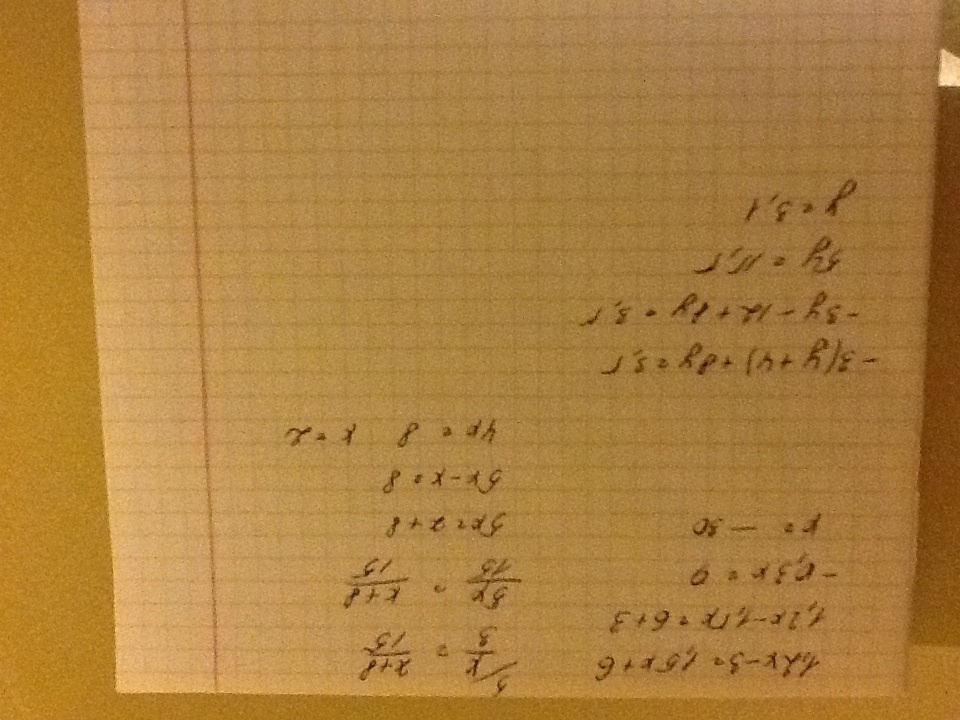 1,2x-3=1,5x+6
1,2x-1,5x=6+3
-0,3x=9
x= -30
5/ x/3 = x+8/15
5x/15 = x+8/15
5x=x+8
5x-x=8
4x = 8 x=2
-3(y+4)+8y=3,5
-3y-12+8y=3,5
5y=15,5
y=3,1